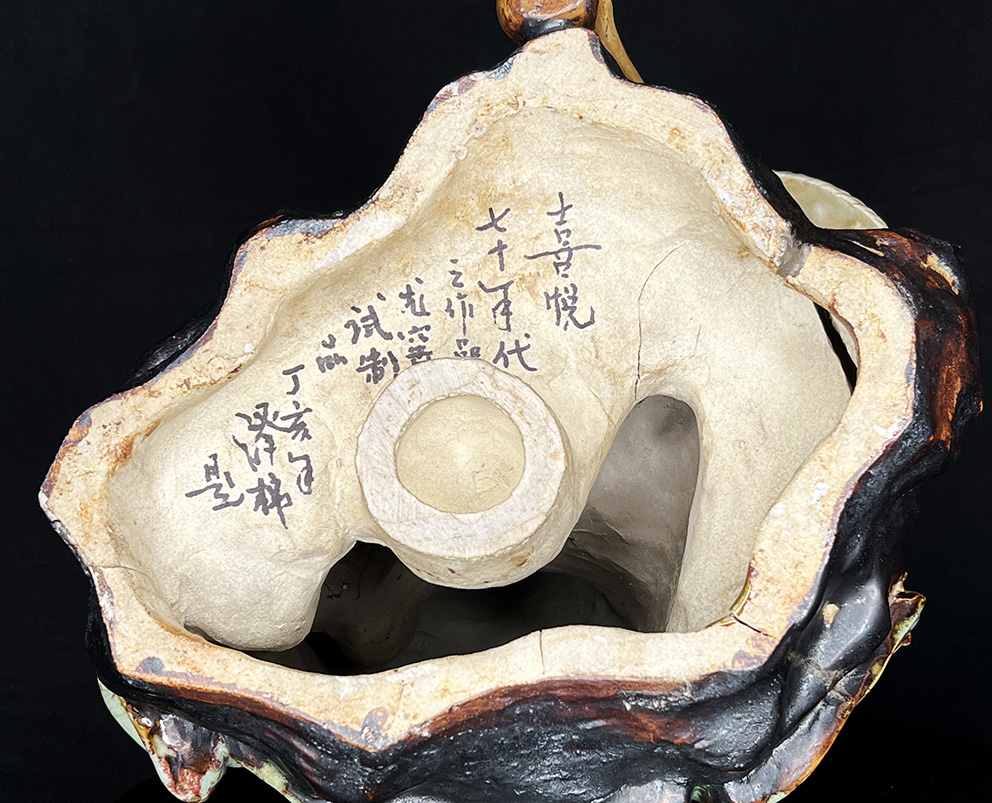 喜悦
七十年代
之作品
龙窑
试制
品
丁亥年
泽棉
题